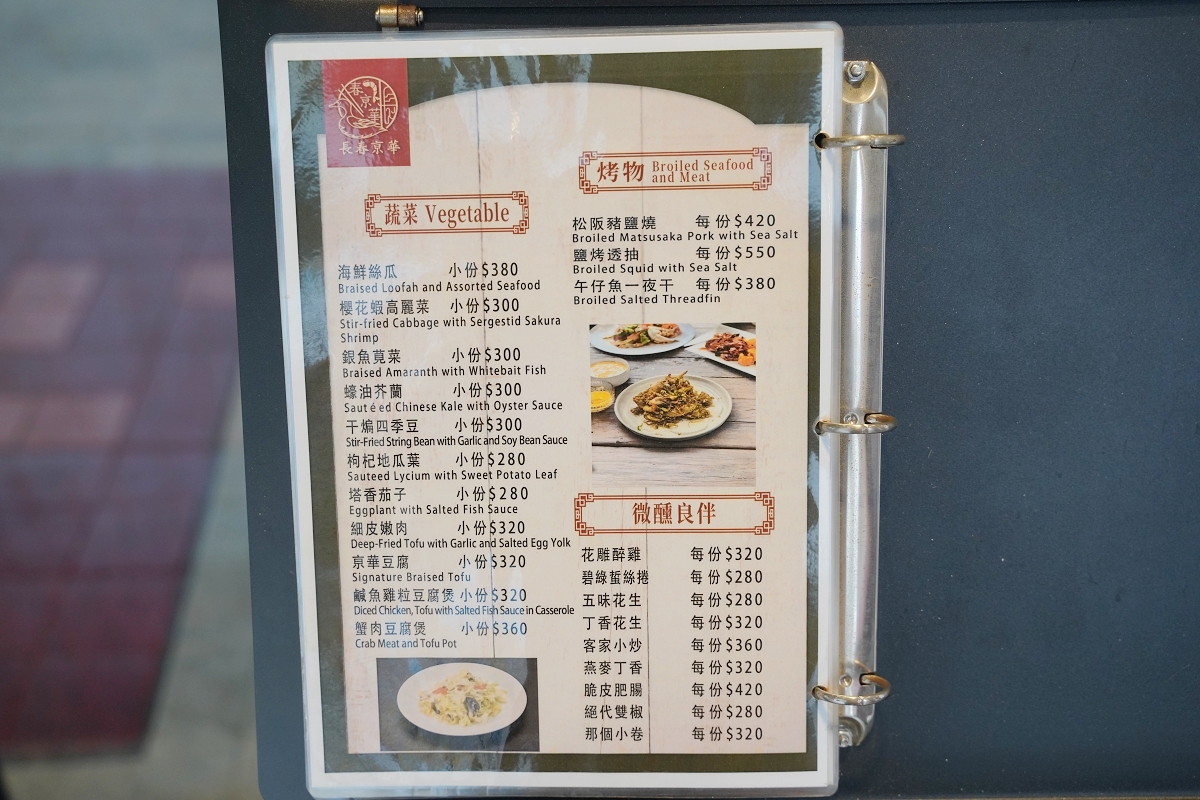 春京華
長春京華
蔬菜 Vegetable
海鮮絲瓜 小份$380
Braised Loofah and Assorted Seafood
櫻花蝦高麗菜 小份$300
Stir-fried Cabbage with Sergestid Sakura
Shrimp
銀魚莧菜 小份$300
Braised Amaranth with Whitebait Fish
蠔油芥蘭 小份$300
Sautéed Chinese Kale with Oyster Sauce
干煸四季豆 小份$300
Stir-Fried String Bean with Garlic and Soy Bean Sauce
枸杞地瓜葉 小份$280
Sauteed Lycium with Sweet Potato Leaf
塔香茄子 小份$280
Eggplant with Salted Fish Sauce
細皮嫩肉 小份$320
Deep-Fried Tofu with Garlic and Salted Egg Yolk
京華豆腐 小份$320
Signature Braised Tofu
鹹魚雞粒豆腐煲 小份$320
Diced Chicken, Tofu with Salted Fish Sauce in Casserole
蟹肉豆腐煲 小份$360
Crab Meat and Tofu Pot
烤物 Broiled Seafood
and Meat
松阪豬鹽燒 每份$420
Broiled Matsusaka Pork with Sea Salt
鹽烤透抽 每份$550
Broiled Squid with Sea Salt
午仔魚一夜干 每份$380
Broiled Salted Threadfin
微醺良伴
花雕醉雞 每份$320
碧綠蜇絲捲 每份$280
五味花生 每份$280
丁香花生 每份$320
客家小炒 每份$360
燕麥丁香 每份$320
脆皮肥腸 每份$420
絕代雙椒 每份$280
那個小卷 每份$320